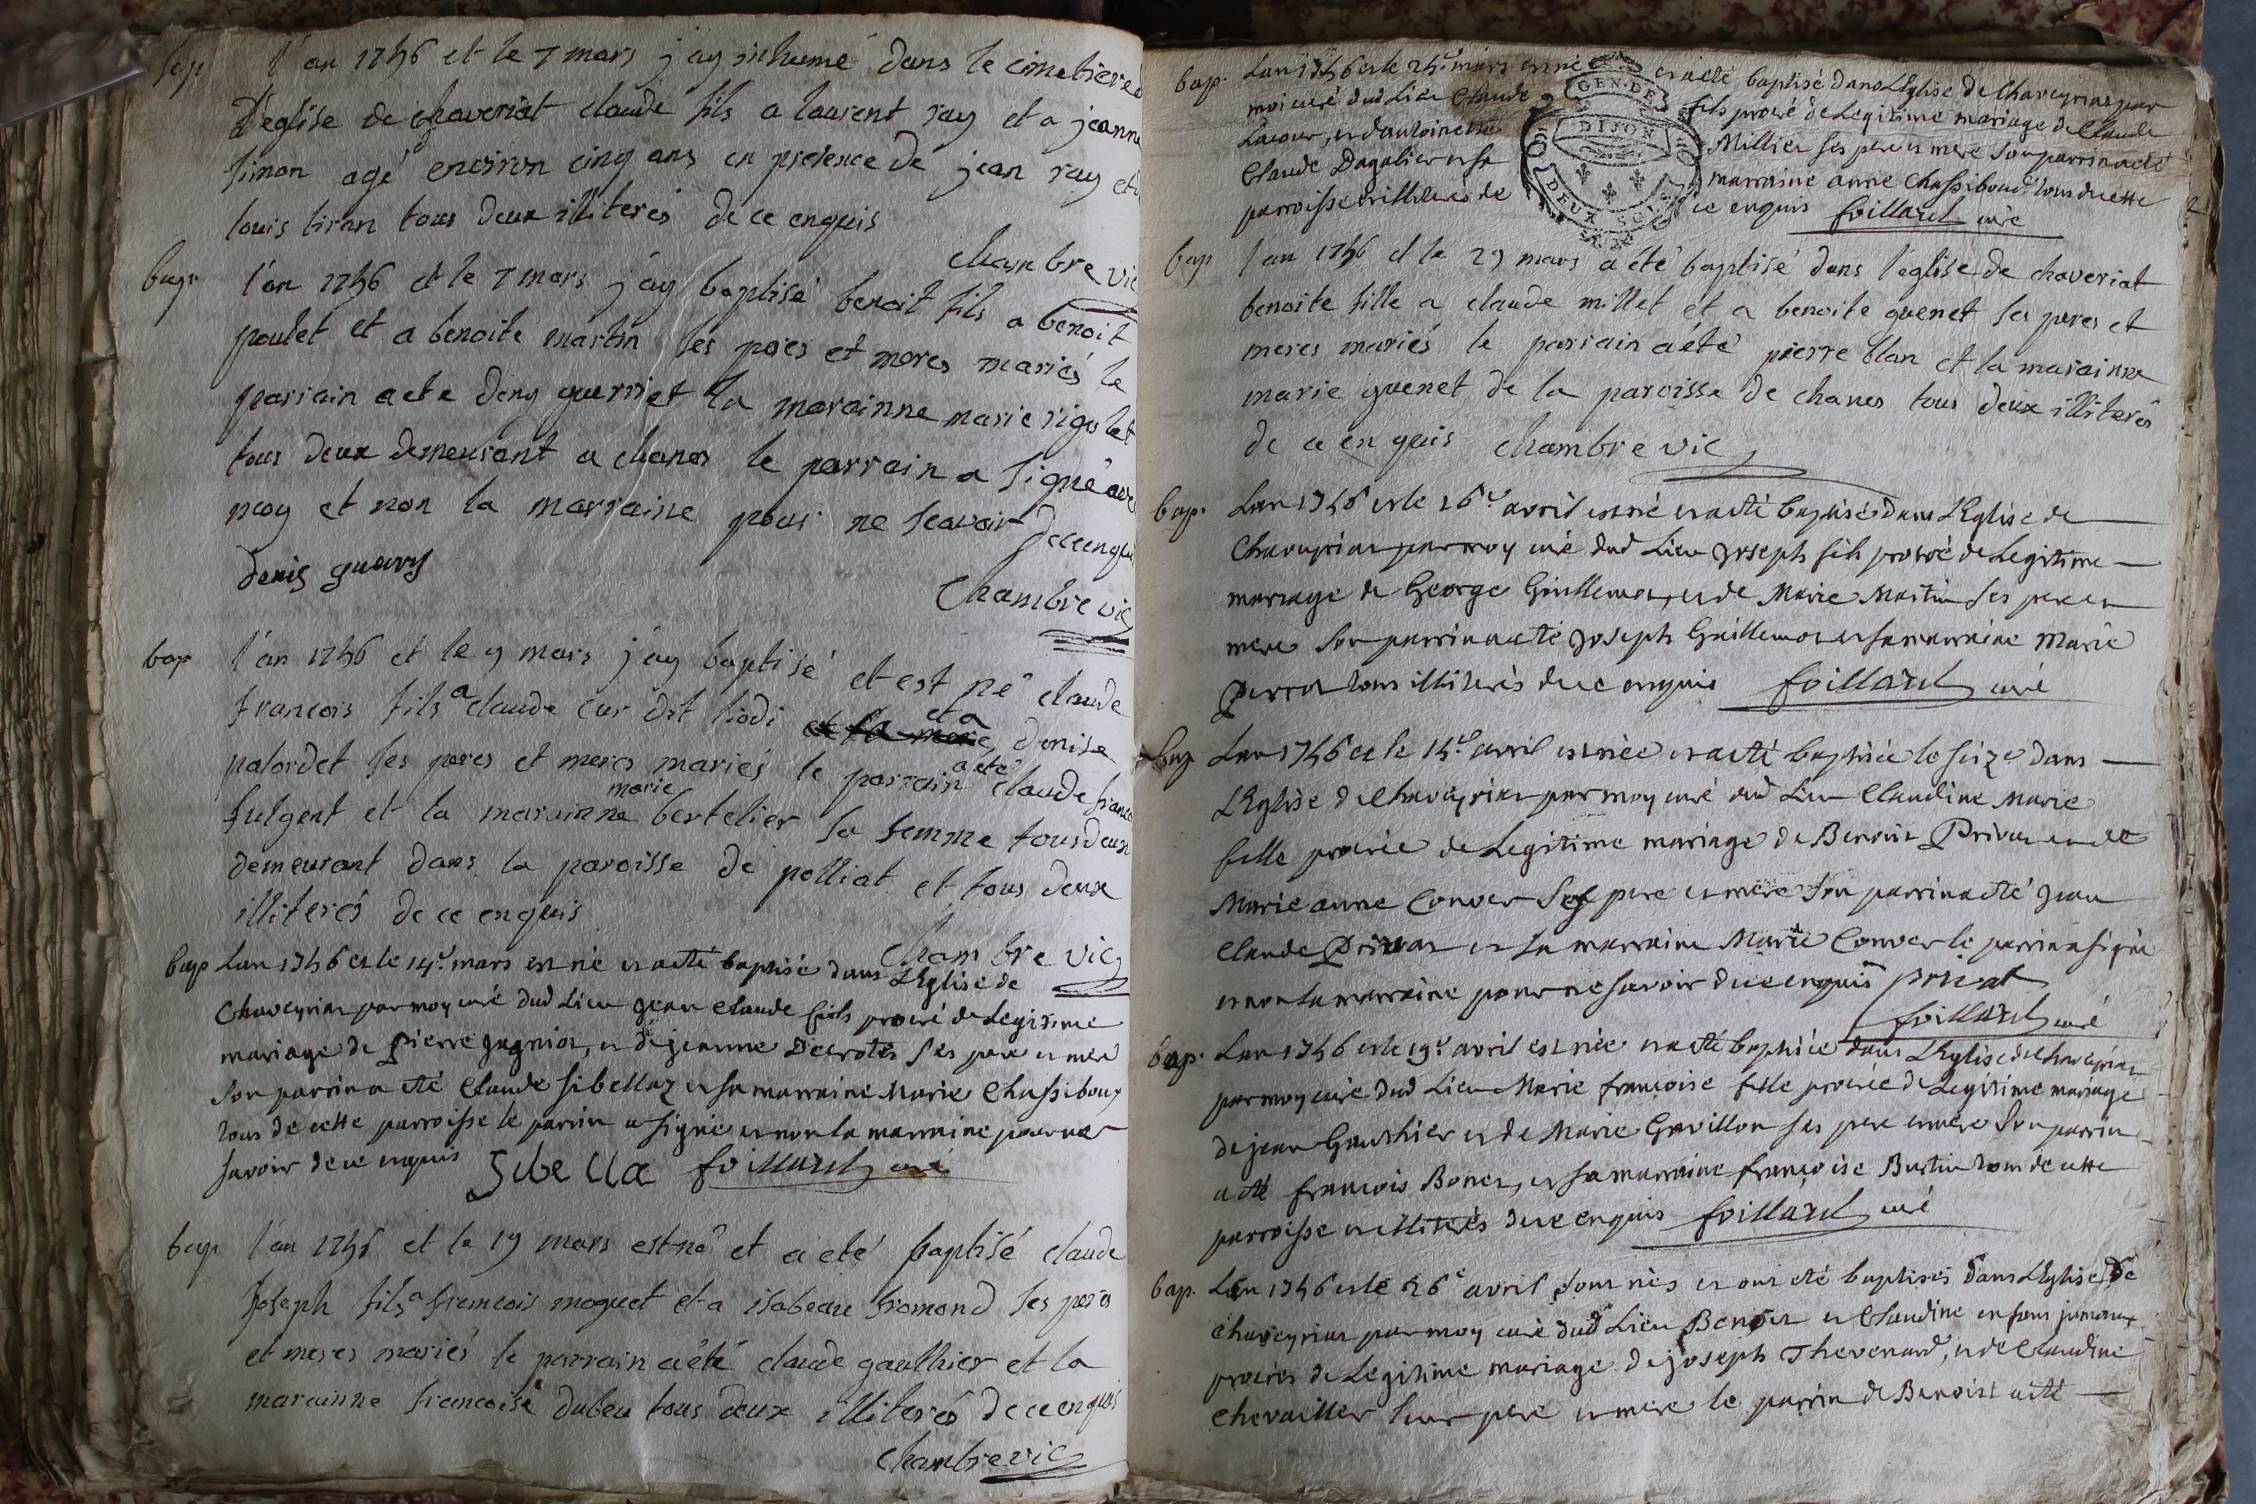 sep l'an 1746 et le 7 mars j'ay inhumé dans le cimetiere d
l'église de chaveriat claude fils a laurent ray et a jeanne
simon agé d'environ cinq ans en presence de jean ray et
louis tiran tous deux illiteres de ce enquis
chambre vic
bap l'an 1746 et le 7 mars j'ay baptisé benoit fils a benoit
poulet et a benoite martin ses peres et meres mariés le
parrain a ete deny guerri et la marainne marie rigolet
tous deux demeurant a chanes le parrain a signé avec
moy et non la marraine pour ne scavoir de ce enquis
denis guarry
Chambre vic
bap l'an 1746 et le 9 mars j'ay baptisé et est né claude
francois fils a claude cur dit liodi et a denise
palordet ses peres et meres mariés le parrain a eté claude francois
fulgent et la marainne marie bertelier sa femme tous deux
demeurant dans la paroisse de polliat et tous deux
illiterés de ce enquis
chambre vic
bap Lan 1746 et le 14e mars est né et a eté baptisé dans L'Eglise de
Chaveyriat par moy curé dud Lieu jean claude fils procréé de Legitime
mariage de Pierre gagnior, et de jeanne Decrotes ses pere et mere
son parrin a eté Claude sibellaz et sa marraine Marie Chassibouz
tous de cette parroisse le parrin a signé et non la marraine pour ne
savoir de ce enquis Sibella foillard curé
bap l'an 1746 et le 19 mars est né et a eté baptisé claude
Joseph fils a francois moquet et a isabeau fromond ses peres
et meres mariés le parrain a été claude gaulthier et la
marainne francoise dubeu tous deux illiterés de ce enquis
chambre vic
bap. Lan 1746 et le 24e mars est né et a eté baptisé dans L'Eglise de Chaveyriat par
moi curé dud Lieu Claude fils procréé de Legitime mariage de Claude
Lacour, et d'antoinette Millier ses pere et mere son parrin a eté
Claude Dagalier et sa marraine anne Chassiboud tous de cette
parroisse et illiterés de ce enquis foillard curé
GEN. DE
DIJON
DEUX SOLS
bap l'an 1746 et le 29 mars a été baptisé dans l'eglise de chaveriat
benoite fille a claude millet et a benoite guenet ses peres et
meres mariés le parrain a été pierre blan et la marainne
marie guenet de la paroisse de chanes tous deux illiterés
de ce enquis chambre vic
bap. Lan 1746 et le 16e avril est né et a eté baptisé dans L'Eglise de
Chaveyriat par moy curé dud Lieu Joseph fils procréé de Legitime
mariage de George Guillemot, et de Marie Martin ses pere et
mere son parrin a eté Joseph Guillemot et sa marraine Marie
Perrot tous illiterés de ce enquis foillard curé
bap Lan 1746 et le 15e avril est née et a eté baptisée le seize dans
L'Eglise de Chaveyriat par moy curé dud Lieu Claudine Marie
fille procréée de Legitime mariage de Benoit Privat et de
Marie anne Conver ses pere et mere son parrin a eté Jean
Claude Privat et sa marraine Marie Conver le parrin a signé
et non la marraine pour ne savoir de ce enquis privat
foillard curé
bap. Lan 1746 et le 19e avril est née et a eté baptisée dans L'Eglise de Chaveyriat
par moy curé dud Lieu Marie françoise fille procréée de Legitime mariage
de jean Gauthier et de Marie Gavillon ses pere et mere son parrin
a eté françois Bonet, et sa marraine françoise Burtin tous de cette
parroisse et illiterés de ce enquis foillard curé
bap. Lan 1746 et le 26e avril sont nés et ont eté baptisés dans L'Eglise De
Chaveyriat par moy curé dud Lieu Benoit et Claudine enfans jumeaux
procréés de Legitime mariage de joseph Thevenard, et de Claudine
Chevailler leur pere et mere le parrin de Benoist a eté